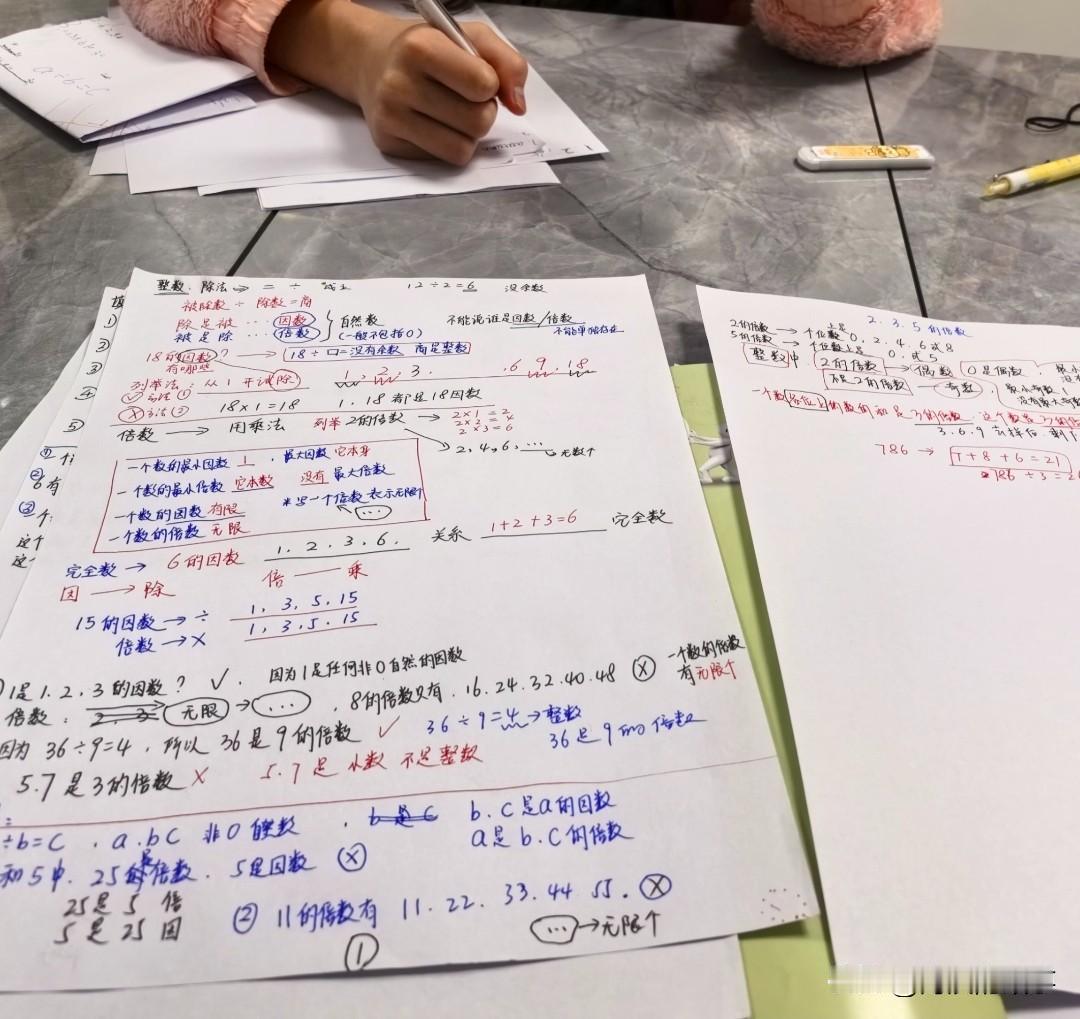 a÷b=c
整数.除法 ⇒ 二 ÷ 12÷2=6 没余数
被除数÷除数=商
除是被…因数
被是除…倍数
自然数
(一般不包括0)
不能说谁是因数/倍数
不能单独存在
18的因数?
有哪些
18÷口=没有余数 商是整数
列举法:从1开试除
1, 2, 3. .6 9 .18
✓方法①
Ⓧ方法②
18×1=18 1.18都是18因数
倍数 → 用乘法 列举2的倍数 →
2×1=2
2×2=4
2×3=6
2,4,6,… 无数个
一个数的最小因数1,最大因数它本身
一个数的最小倍数它本数 没有最大倍数
一个数的因数有限
*写一个倍数表示无限个
…
一个数的倍数无限
完全数→ 6的因数 1.2.3.6. 关系 1+2+3=6 完全数
因 → 除 倍 — 乘
15的因数→÷ 1,3,5,15
倍数→× 1,3,5.15
1是1.2.3的因数? ✓. 因为1是任何非0自然的因数
倍数. 2.3 无限 → …
8的倍数只有.16.24.32.40.48 Ⓧ
一个数的倍数
有无限个
因为36÷9=4,所以36是9的倍数 ✓
36÷9=4→整数
36是9的倍数
5.7是3的倍数 × 5.7是小数 不是整数
÷b=c .a.bc 非0自然数 , b是c b.c是a的因数
a是b.c的倍数
和5中.25是倍数.5是因数 Ⓧ
25是5倍
5是25因
② 11的倍数有 11.22.33.44 55. Ⓧ
… →无限个
①
填
①
②
③
④
⑤
①
②
6有
③
个
这个
这
2.3.5的倍数
2的倍数→个位数上是0,2,4,6或8
5的倍数→个位数上是0.或5
整数中 2的倍数→偶数 0是偶数
不是2的倍数→奇数
一个数各位上的数的和是3的倍数,这个数是3的倍数
3.6.9去掉后
786 → 7+8+6=21
786÷3=2